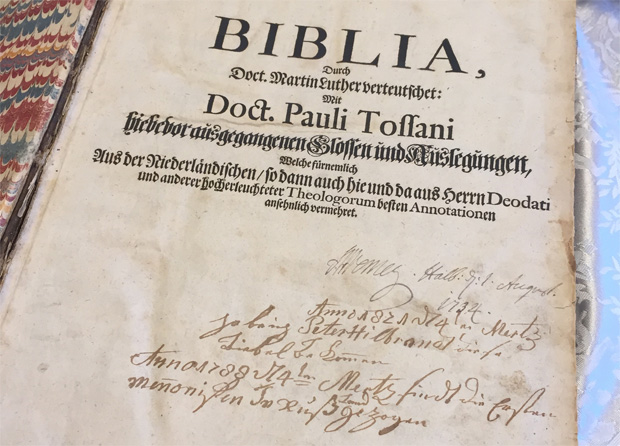 BIBLIA,
Durch
Doct. Martin Luther verteutschet:
Mit
Doct. Pauli Tossani
hiebevor ausgegangenen Glossen und Auslegungen,
Welche fürnemlich
Aus der Niederländischen / so dann auch hie und da aus Herrn Deodati
und anderer hocherleuchteter Theologorum besten Annotationen
ansehnlich vermehret.
Hall. d. 1. August.
1734.
Anno 1821 d 4 Mertz
Peter Hilbrandt diese
Biebel
Anno 1788 d 4 Mertz sindt die Ersten
menonisten In Rußland gezogen